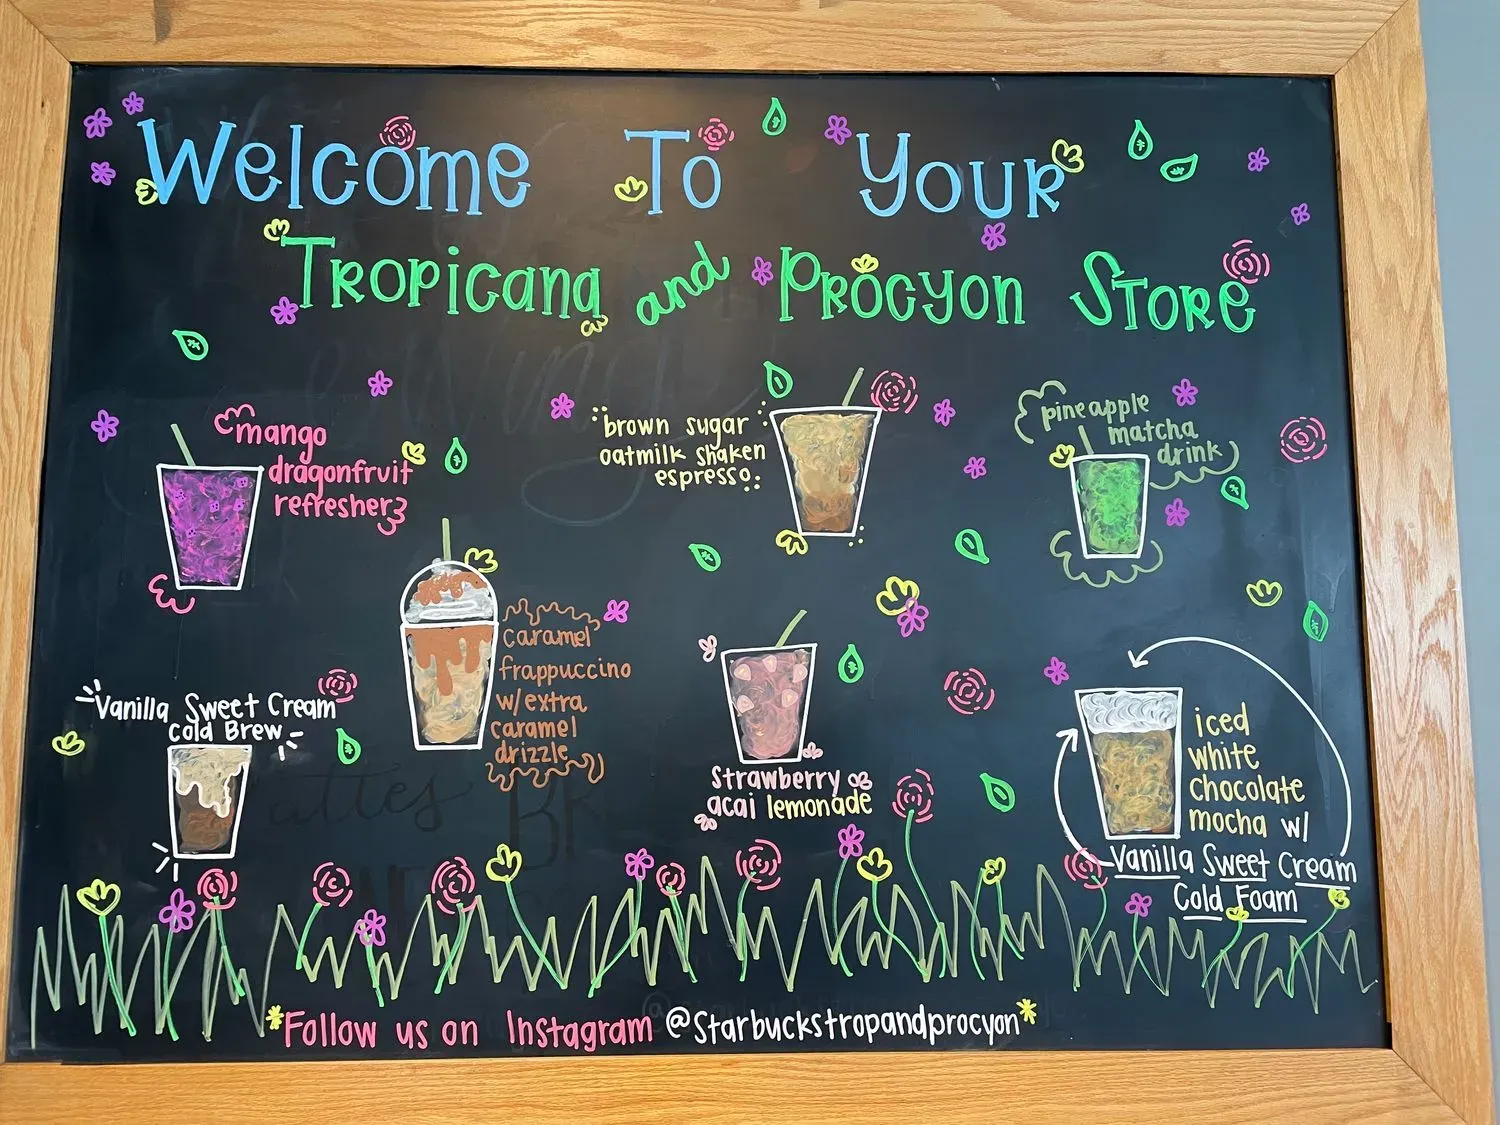 Welcome To Your
Tropicana and Procyon Store
mango
dragonfruit
refresher
brown sugar
oatmilk shaken
espresso
pineapple
matcha
drink
caramel
frappuccino
w/extra
caramel
drizzle
Vanilla Sweet Cream
Cold Brew
Strawberry
acai lemonade
iced
white
chocolate
mocha w/
Vanilla Sweet Cream
Cold Foam
*Follow us on Instagram @Starbuckstropandprocyon*